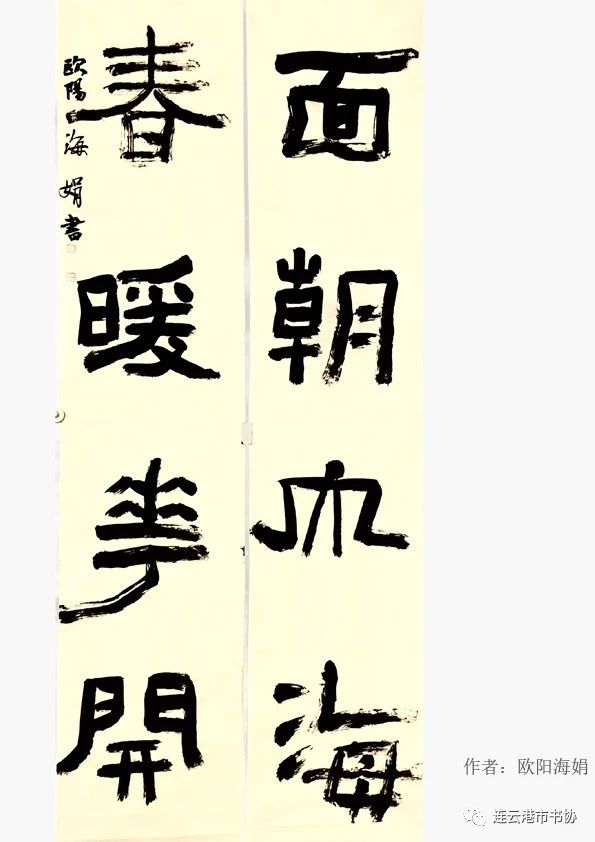 面朝大海
春暖花開
歐陽海娟書
作者：欧阳海娟
连云港市书协